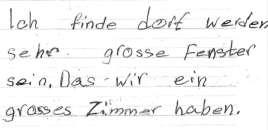 Ich finde dort werden
sehr grosse Fenster
sein. Das wir ein
grosses Zimmer haben.